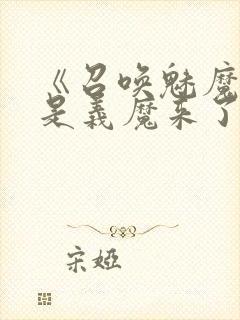 《召唤魅魔
是义魔来了
宋娅